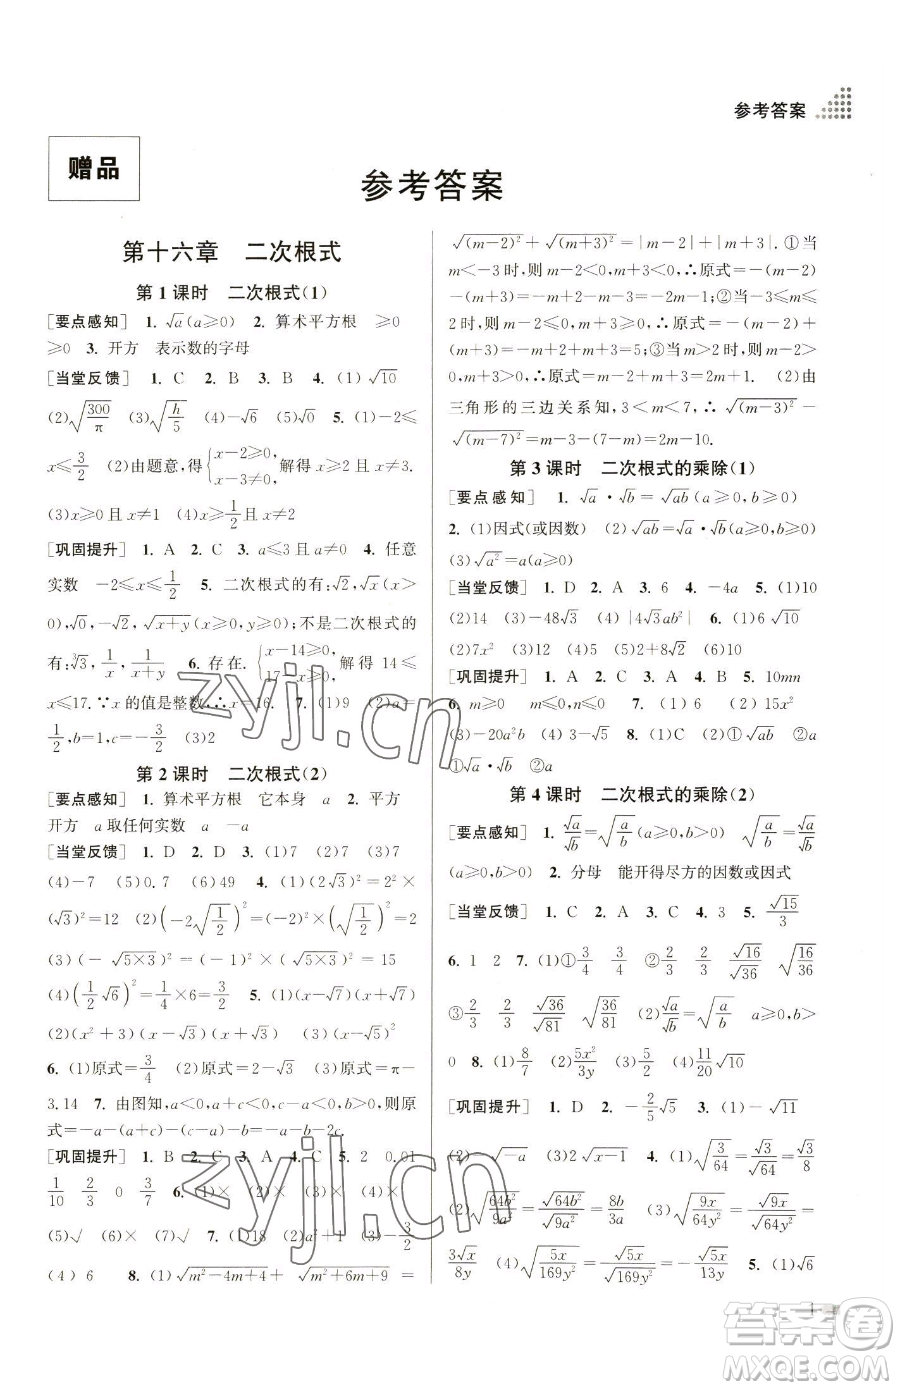 参考答案
赠品
参考答案
第十六章　二次根式
第1课时　二次根式(1)
[要点感知] 1. √a(a≥0) 2. 算术平方根 ≥0
≥0 3. 开方 表示数的字母
[当堂反馈] 1. C 2. B 3. B 4. (1)√10
(2)√(300/π) (3)√(h/5) (4)-√6 (5)√0 5. (1)-2≤
x≤3/2 (2)由题意,得{x-2≥0, x-3≠0,解得x≥2且x≠3.
(3)x≥0且x≠1 (4)x≥1/2且x≠2
[巩固提升] 1. A 2. C 3. a≤3且a≠1 4. 任意
实数 -2≤x≤1/2 5. 二次根式的有:√2,√x(x>
0),√0,-√2,√(x+y)(x≥0,y≥0);不是二次根式的
有:∛3,1/x,1/(x+y) 6. 存在.{x-14≥0, 17-x≥0,解得14≤
x≤17.∵x的值是整数,∴x=16. 7. (1)9 (2)a=
1/2,b=1,c=-3/2 (3)2
第2课时　二次根式(2)
[要点感知] 1. 算术平方根 它本身 a 2. 平方
开方 a取任何实数 a -a
[当堂反馈] 1. D 2. D 3. (1)7 (2)7 (3)7
(4)-7 (5)0.7 (6)49 4. (1)(2√3)²=2²×
(√3)²=12 (2)(-2√(1/2))²=(-2)²×(√(1/2))²=2
(3)(-√(5×3))²=(-1)²×(√(5×3))²=15
(4)(1/2√6)²=1/4×6=3/2 5. (1)(x-√7)(x+√7)
(2)(x²+3)(x-√3)(x+√3) (3)(x-√2)²
6. (1)原式=3/4 (2)原式=2-√3 (3)原式=π-
3.14 7. 由图知,a<0,a+c<0,c-a<0,b>0,则原
式=-a-(a+c)-(c-a)-b=-a-b-2c.
[巩固提升] 1. B 2. C 3. A 4. C 5. 2 0.01
1/10 2/3 0 3/7 6. (1)× (2)× (3)√ (4)×
(5)√ (6)√ 7. (1)18 (2)a²+1 (3)-3/2
(4)6 8. (1)√(m²-4m+4)+√(m²+6m+9)=
√(m-2)²+√(m+3)²=|m-2|+|m+3|.①当
m<-3时,则m-2<0,m+3<0,∴原式=-(m-2)
-(m+3)=-m+2-m-3=-2m-1;②当-3≤m≤
2时,则m-2≤0,m+3≥0,∴原式=-(m-2)+
(m+3)=-m+2+m+3=5;③当m>2时,则m-2>
0,m+3>0,∴原式=m-2+m+3=2m+1. (2)由
三角形的三边关系知,3<m<7,∴√(m-3)²-
√(m-7)²=m-3-(7-m)=2m-10.
第3课时　二次根式的乘除(1)
[要点感知] 1. √a·√b=√ab(a≥0,b≥0)
2. (1)因式(或因数) (2)√ab=√a·√b(a≥0,b≥0)
(3)√a²=a(a≥0)
[当堂反馈] 1. D 2. A 3. 6 4. -4a 5. (1)10
(2)14 (3)-48√3 (4)|4√3ab²| 6. (1)6√10
(2)7x² (3)12 (4)√5 (5)2+√3 (6)2√19
[巩固提升] 1. A 2. C 3. A 4. A 5. 10mn
6. m≥0 m≤0,n≤0 7. (1)6 (2)15x²
(3)-20a²b (4)3-√5 8. (1)C (2)①√ab ②a
√a ①√ab ②a√a
第4课时　二次根式的乘除(2)
[要点感知] 1. √a/√b=√(a/b)(a≥0,b>0) √(a/b)=√a/√b
(a≥0,b>0) 2. 分母 能开得尽方的因数或因式
[当堂反馈] 1. C 2. A 3. C 4. 3 5. √15/3
6. 1 2 7. (1)①3/4 3/4 ②2/3 2/3 √16/√36 √(16/36)
③2/3 2/3 √36/√81 √(36/81) (2)√a/√b=√(a/b)(a≥0,b>
0 8. (1)8/7 (2)5x²/3y (3)5/2 (4)11/20 (5)-√2
[巩固提升] 1. D 2. -2/5√5 3. (1)-√11
(2)-√-a (3)2√(x-1) 4. (1)√(3/64)=√3/√64=√3/8
(2)√(64b²/9a²)=√64b²/√9a²=8b/3a (3)√(9x/64y²)=√9x/√64y²=
3√x/8y (4)√(5x/169y²)=√5x/√169y²=√5x/13y 5. (1)√6
1
zyjl.cn
zyjl.cn
答案圈
MXQE.COM